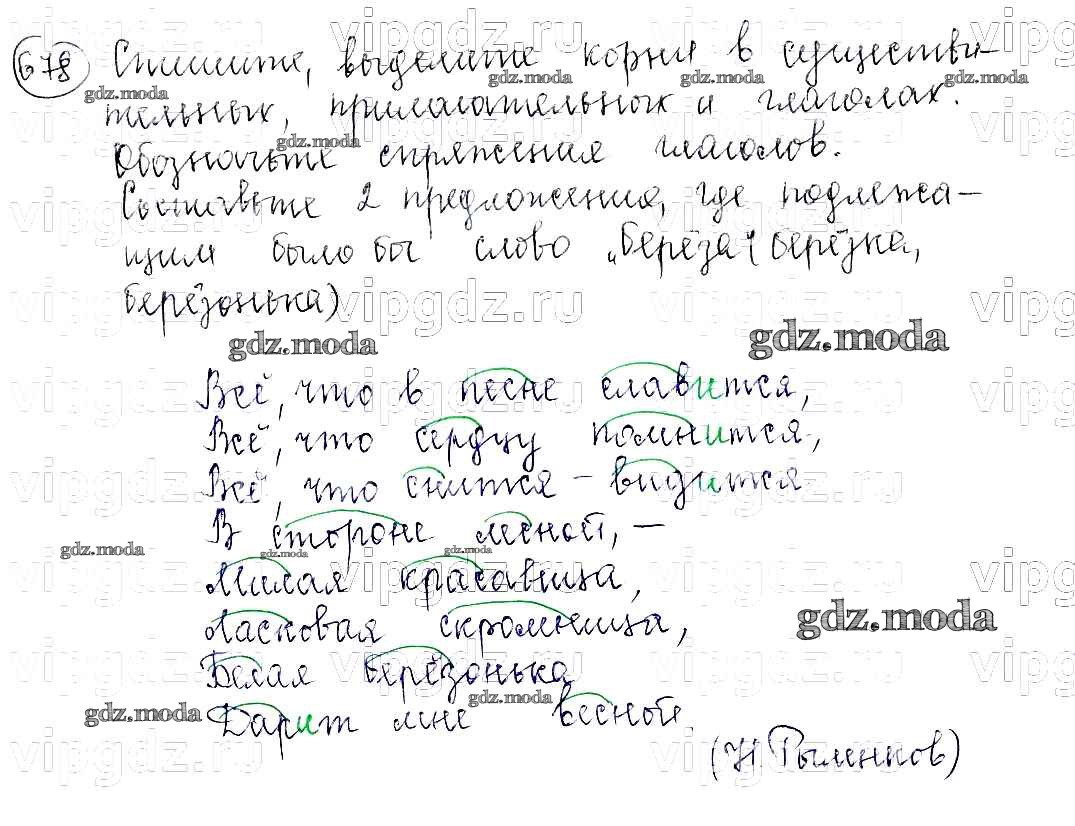 678 Спишите, выделите корни в существи-
тельных, прилагательных и глаголах.
Обозначьте спряжения глаголов.
Составьте 2 предложения, где подлежа-
щим было бы слово „берёза" (берёзка,
берёзонька)
Всё, что в песне славится,
Всё, что сердцу помнится,
Всё, что снится – видится
В стороне лесной, –
Милая красавица,
Ласковая скромница,
Белая берёзонька
Дарит мне весной.
(Н. Рыленков)
gdz.moda
vipgdz.ru